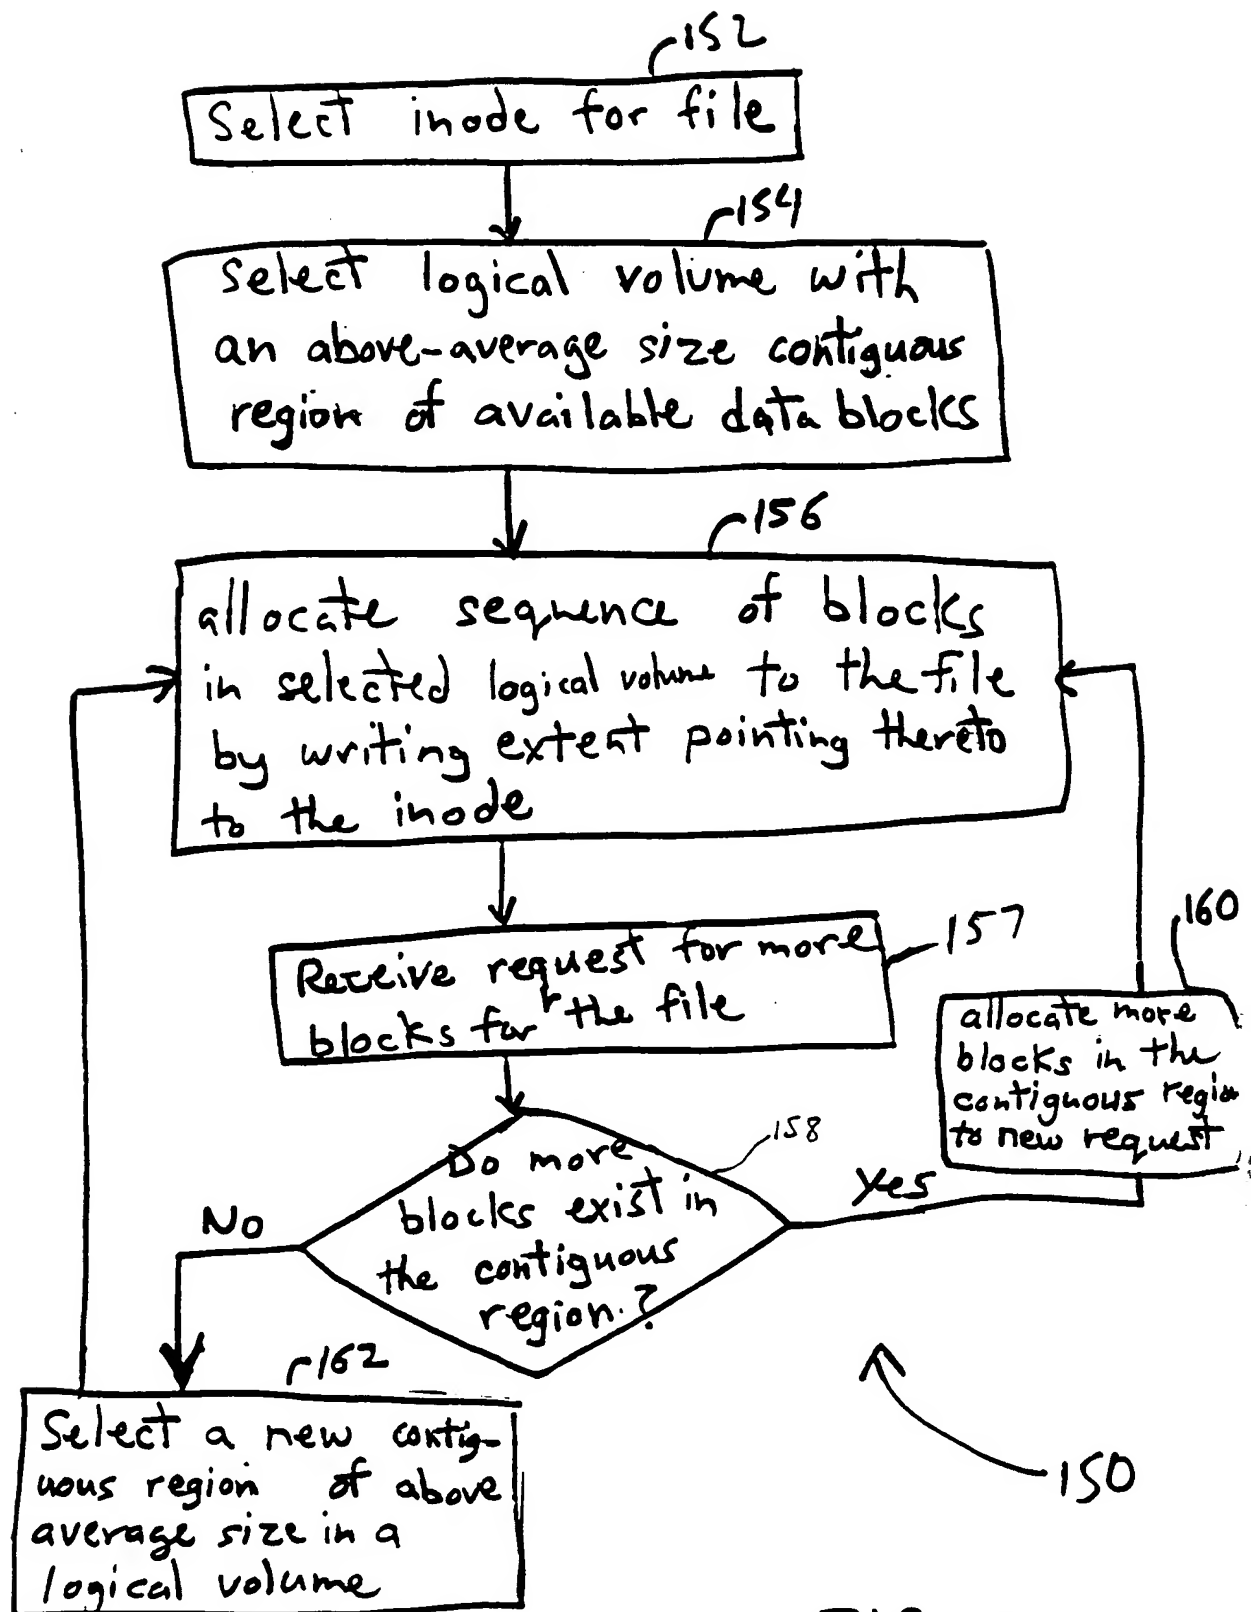 152
Select inode for file
154
Select logical volume with
an above-average size contiguous
region of available data blocks
156
allocate sequence of blocks
in selected logical volume to the file
by writing extent pointing thereto
to the inode
157
Receive request for more
blocks for the file
160
allocate more
blocks in the
contiguous region
to new request
158
Do more
blocks exist in
the contiguous
region?
No
Yes
162
Select a new contig-
uous region of above
average size in a
logical volume
150